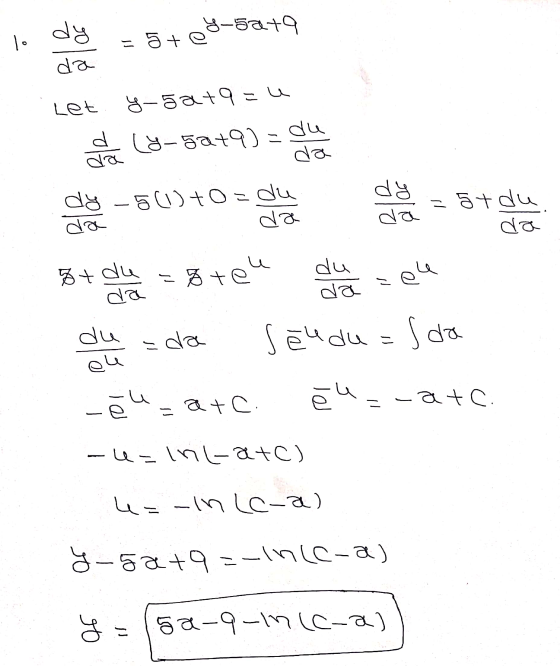 1. dy/dx = 5 + e^(y-5x+9)
Let y-5x+9 = u
d/dx (y-5x+9) = du/dx
dy/dx - 5(1) + 0 = du/dx    dy/dx = 5 + du/dx.
5 + du/dx = 5 + e^u    du/dx = e^u
du/e^u = dx    ∫e^-u du = ∫dx
-e^-u = x + C.    e^-u = -x + C.
-u = ln(-x+C)
u = -ln(C-x)
y-5x+9 = -ln(C-x)
y = 5x-9-ln(C-x)